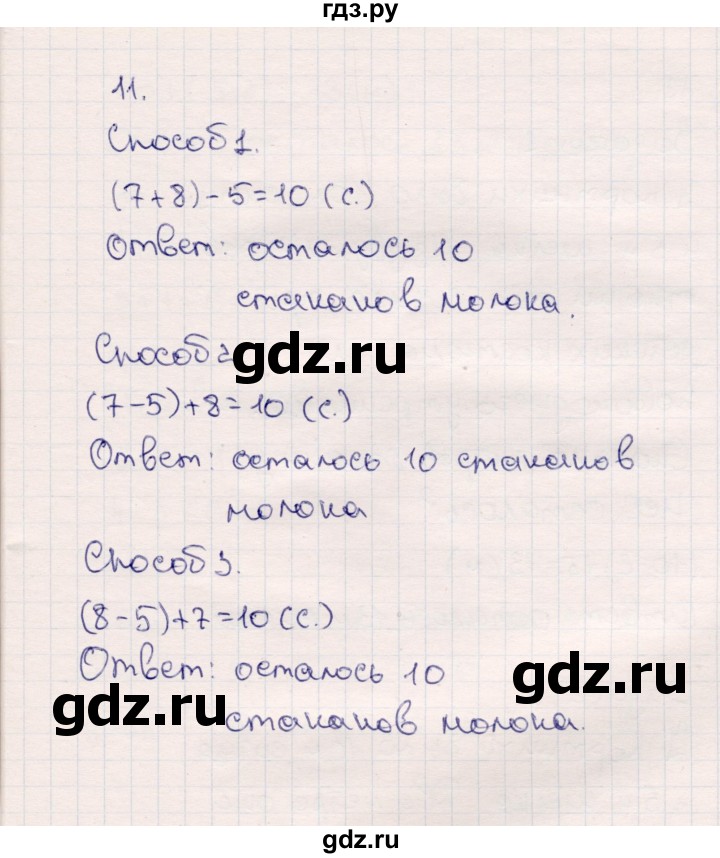 гдз.ру
11.
Способ 1.
(7+8)-5=10 (с.)
Ответ: осталось 10
стаканов молока.
Способ 2
gdz.ru
(7-5)+8=10 (с.)
Ответ: осталось 10 стаканов
молока
Способ 3.
(8-5)+7=10 (с.)
Ответ: осталось 10
gdz.ru
gdz.ru
стаканов молока.
gdz.ru